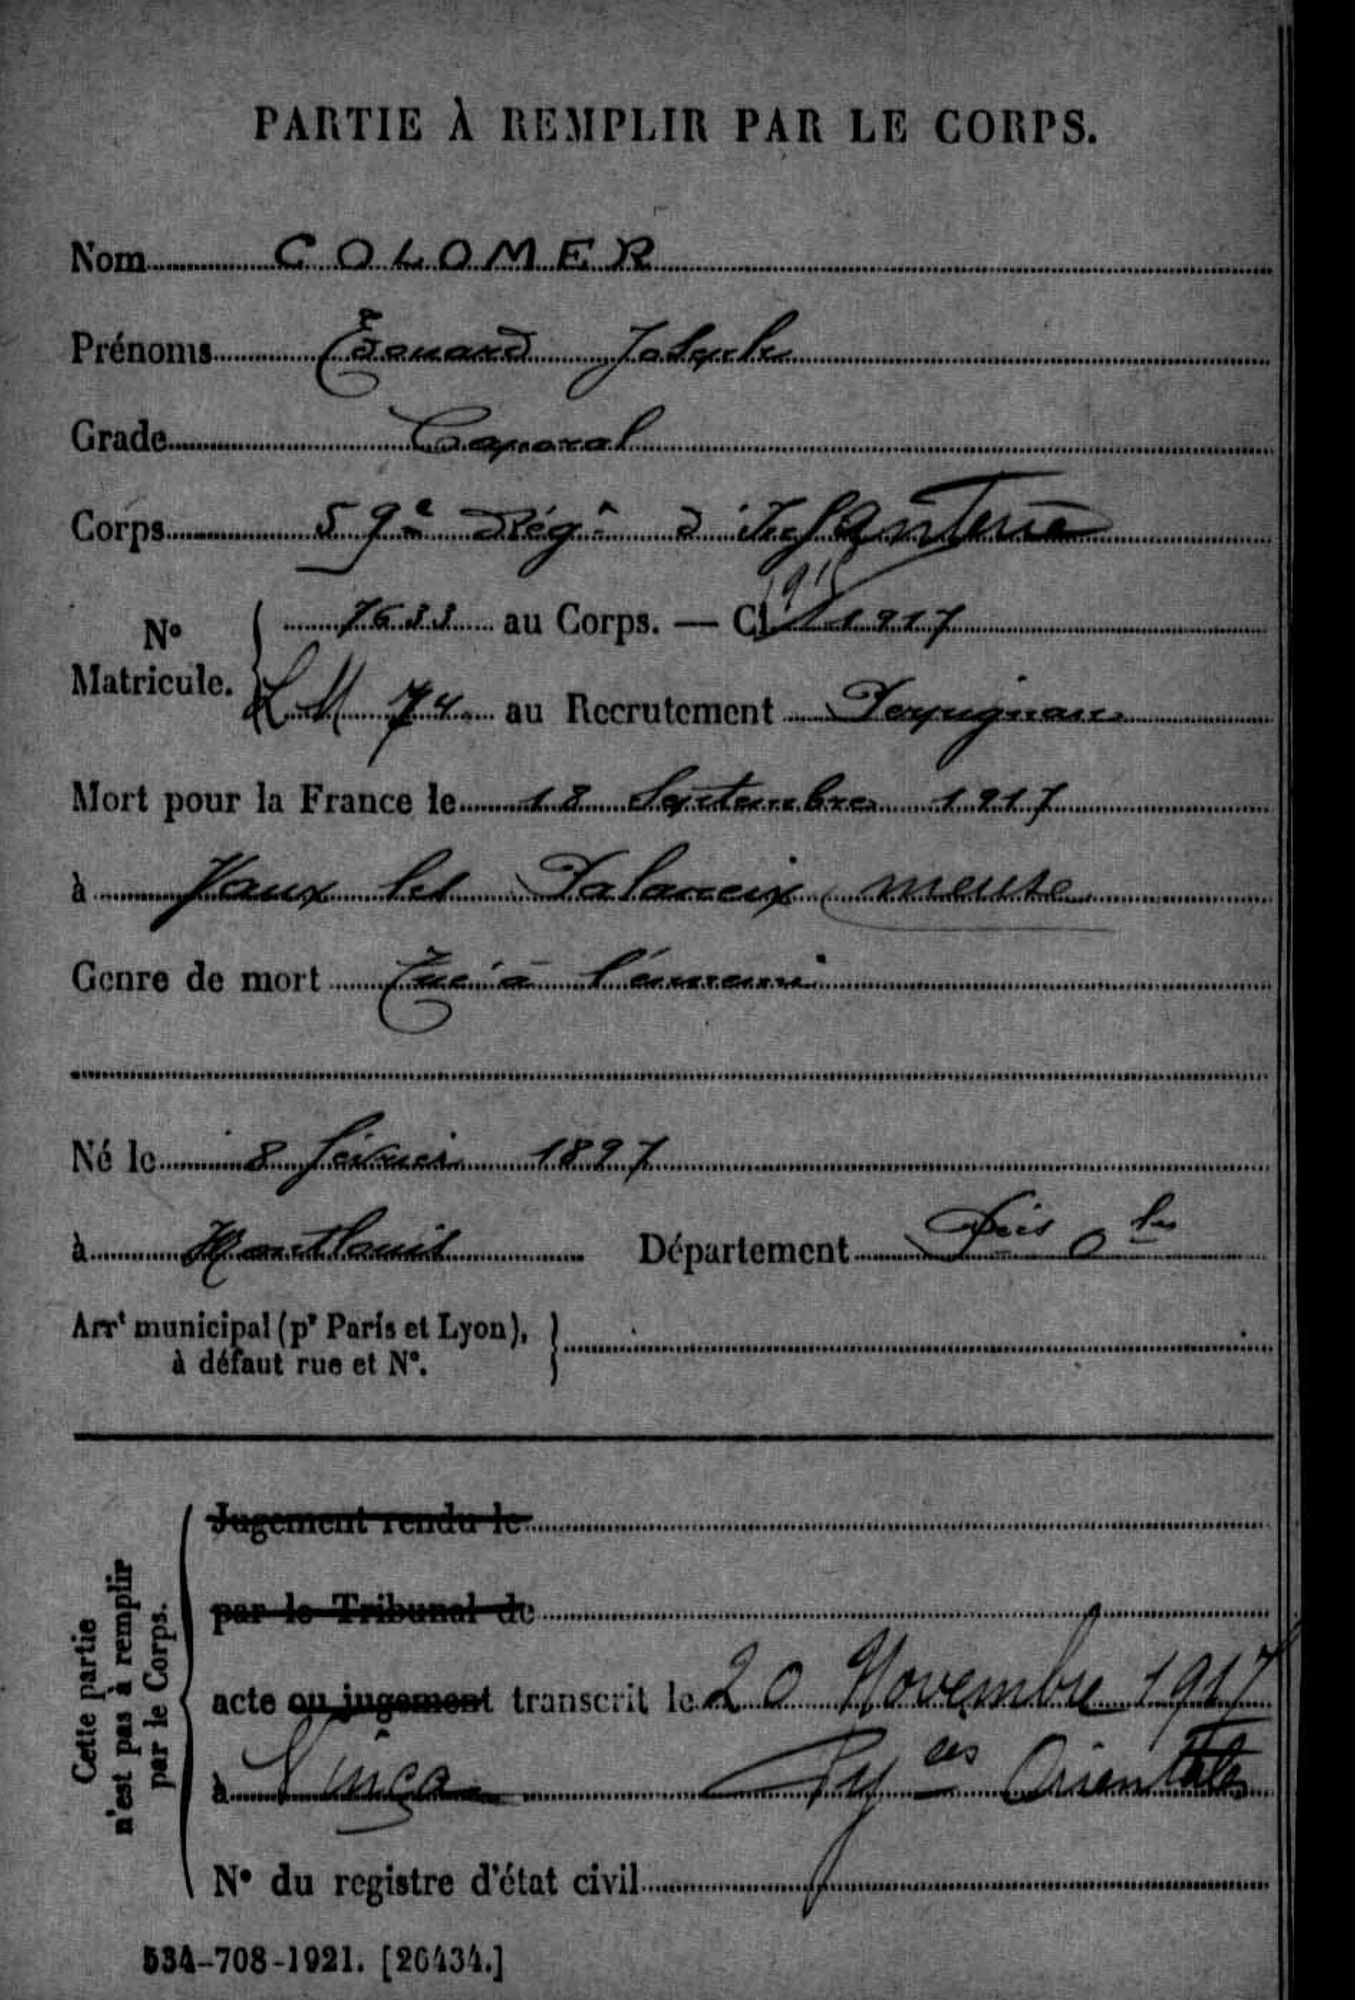 PARTIE À REMPLIR PAR LE CORPS.
Nom COLOMER
Prénoms Édouard Joseph
Grade Caporal
Corps 59e Régt d'Infanterie
N° Matricule. 7633 au Corps. — Cl. 1917
LM 74 au Recrutement Perpignan
Mort pour la France le 18 Septembre 1917
à Vaux les Palameix meuse
Genre de mort Tué à l'ennemi
Né le 8 février 1897
à Montlouis Département Pées Oles
Arrt municipal (pr Paris et Lyon),
à défaut rue et N°.
Cette partie
n'est pas à remplir
par le Corps.
Jugement rendu le
par le Tribunal de
acte ou jugement transcrit le 20 Novembre 1917
à Vinça Pyées Orientales
N° du registre d'état civil
534-708-1921. [26434.]